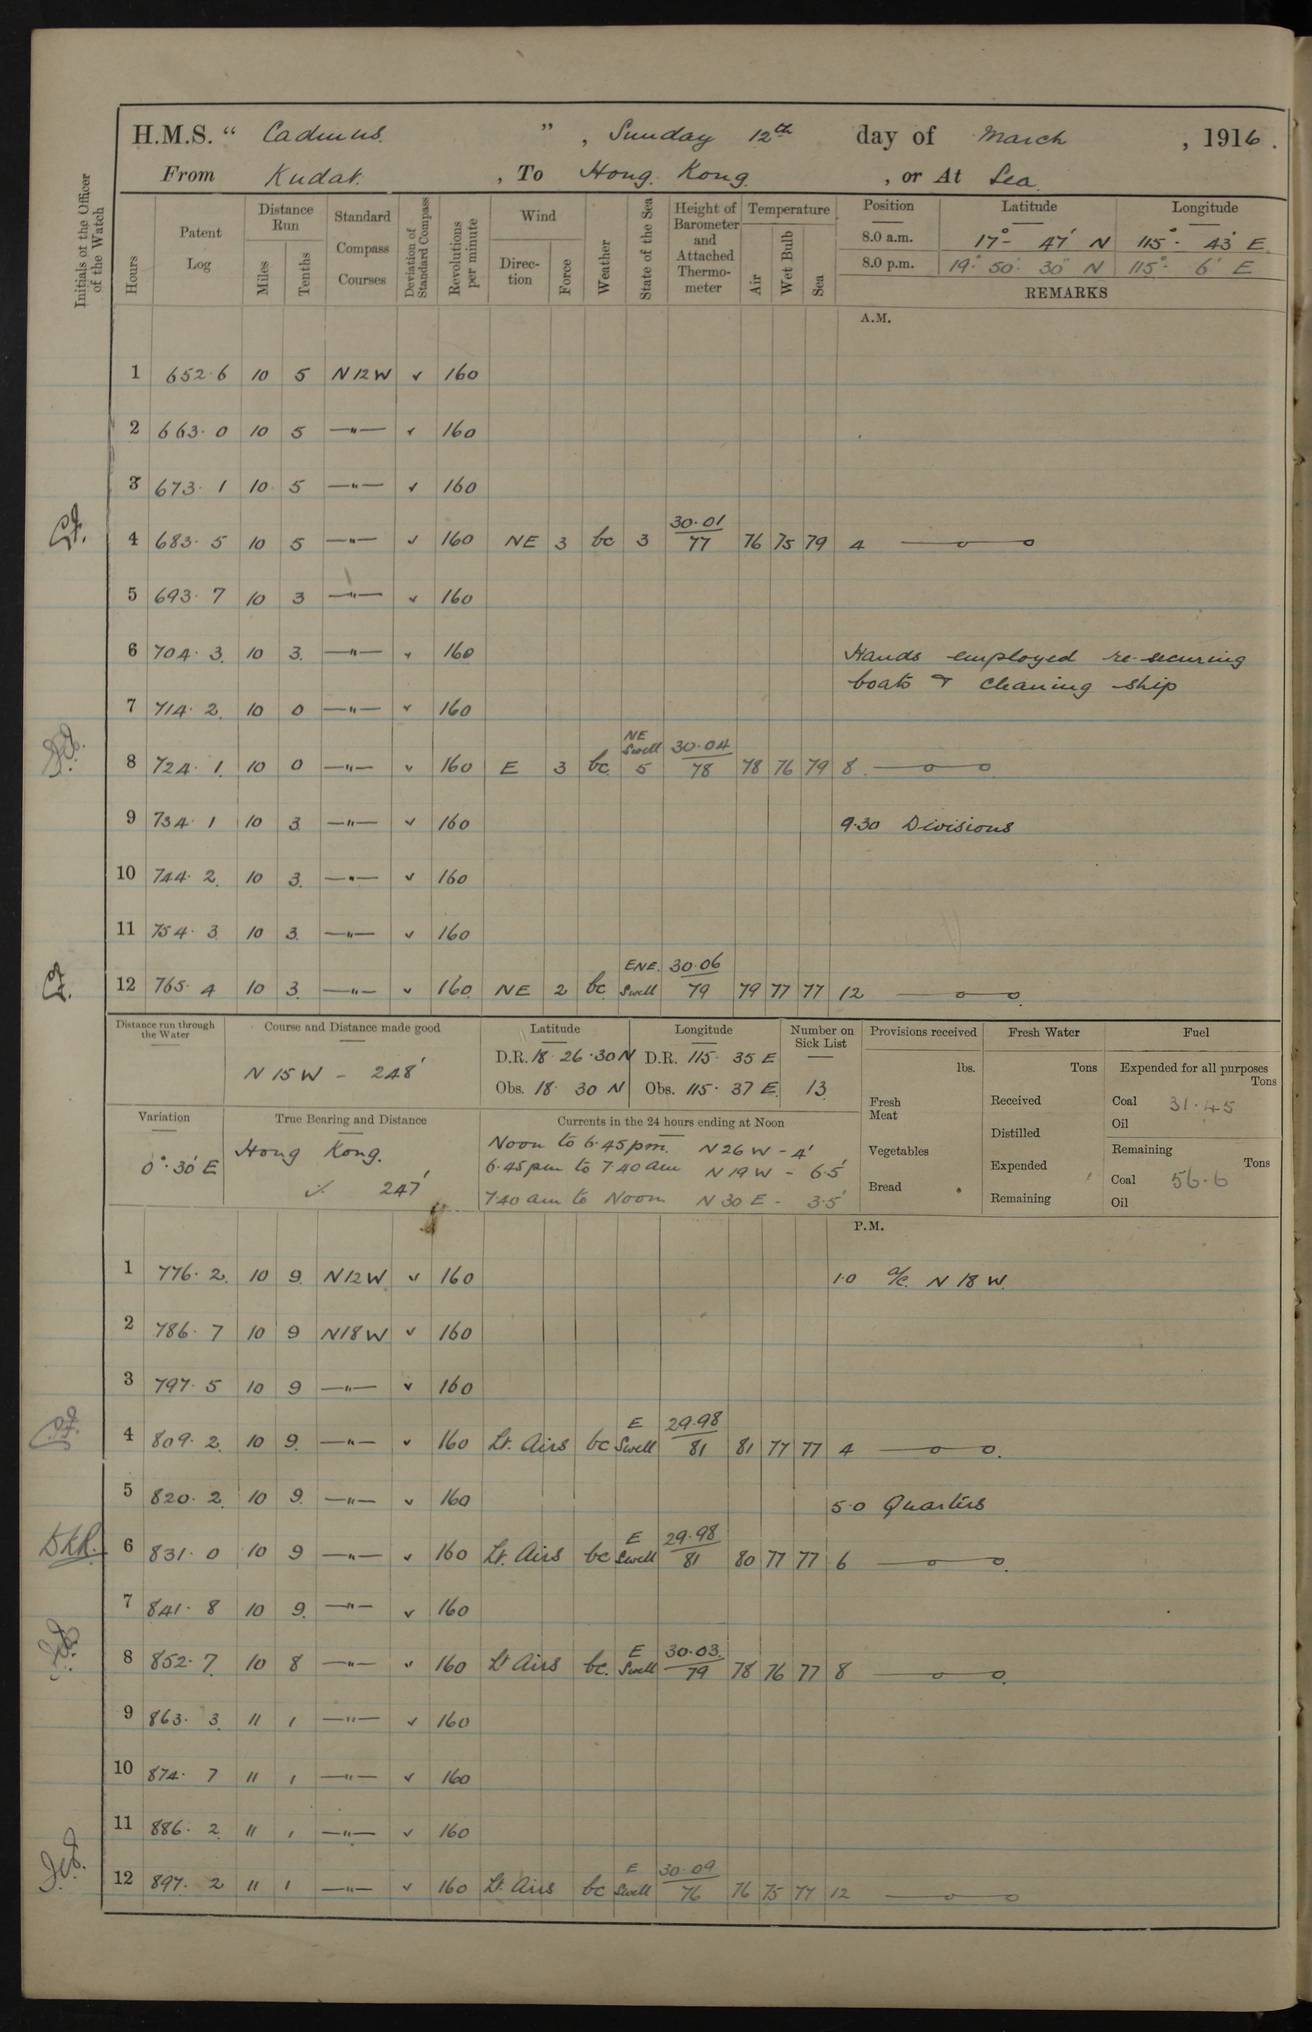 H.M.S. " Cadmus. " , Sunday 12th day of March , 1916.
From Kudat. , To Hong. Kong. , or At Sea.
Initials of the Officer of the Watch
Hours
Patent Log
Distance Run
Miles
Tenths
Standard Compass Courses
Deviation of Standard Compass
Revolutions per minute
Wind
Direction
Force
Weather
State of the Sea
Height of Barometer and Attached Thermometer
Temperature
Air
Wet Bulb
Sea
Position Latitude Longitude
8.0 a.m. 17°- 47' N 115°- 43' E.
8.0 p.m. 19° 50' 30" N 115°- 6' E
REMARKS
A.M.
1 652.6 10 5 N12W ✓ 160
2 663.0 10 5 —"— ✓ 160
3 673.1 10 5 —"— ✓ 160
4 683.5 10 5 —"— ✓ 160 NE 3 bc 3 30.01/77 76 75 79 4
5 693.7 10 3 —"— ✓ 160
6 704.3 10 3. —"— ✓ 160 Hands employed re-securing
boats & cleaning ship
7 714.2 10 0 —"— ✓ 160
8 724.1 10 0 —"— ✓ 160 E 3 bc. NE Swell 5 30.04/78 78 76 79 8
9 734.1 10 3 —"— ✓ 160 9.30 Divisions
10 744.2 10 3. —"— ✓ 160
11 754.3 10 3. —"— ✓ 160
12 765.4 10 3. —"— ✓ 160 NE 2 bc. ENE. Swell 30.06/79 79 77 77 12
Distance run through the Water
Course and Distance made good
N 15 W - 248'
Latitude
D.R. 18.26.30 N
Obs. 18. 30 N
Longitude
D.R. 115. 35 E
Obs. 115. 37 E.
Number on Sick List
13
Provisions received
lbs.
Fresh Meat
Vegetables
Bread
Fresh Water
Tons
Received
Distilled
Expended
Remaining
Fuel
Expended for all purposes
Tons
Coal 31.45
Oil
Remaining
Tons
Coal 56.6
Oil
Variation
0°.30' E
True Bearing and Distance
Hong Kong.
247'
Currents in the 24 hours ending at Noon
Noon to 6.45 pm. N 26 W - 4'
6.45 pm to 7.40 am N 19 W - 6.5'
7.40 am to Noon N 30 E - 3.5'
P.M.
1 776.2 10 9. N12W ✓ 160 1.0 a/c. N 18 W.
2 786.7 10 9 N18W ✓ 160
3 797.5 10 9 —"— ✓ 160
4 809.2 10 9. —"— ✓ 160 Lt. Airs bc E Swell 29.98/81 81 77 77 4
5 820.2 10 9. —"— ✓ 160 5.0 Quarters
DKR. 6 831.0 10 9 —"— ✓ 160 Lt. Airs bc E Swell 29.98/81 80 77 77 6
7 841.8 10 9. —"— ✓ 160
8 852.7 10 8 —"— ✓ 160 Lt Airs bc. E Swell 30.03./79 78 76 77 8
9 863.3 11 1 —"— ✓ 160
10 874.7 11 1 —"— ✓ 160
11 886.2 11 1 —"— ✓ 160
12 897.2 11 1 —"— ✓ 160 Lt. Airs bc E Swell 30.09/76 76 75 77 12